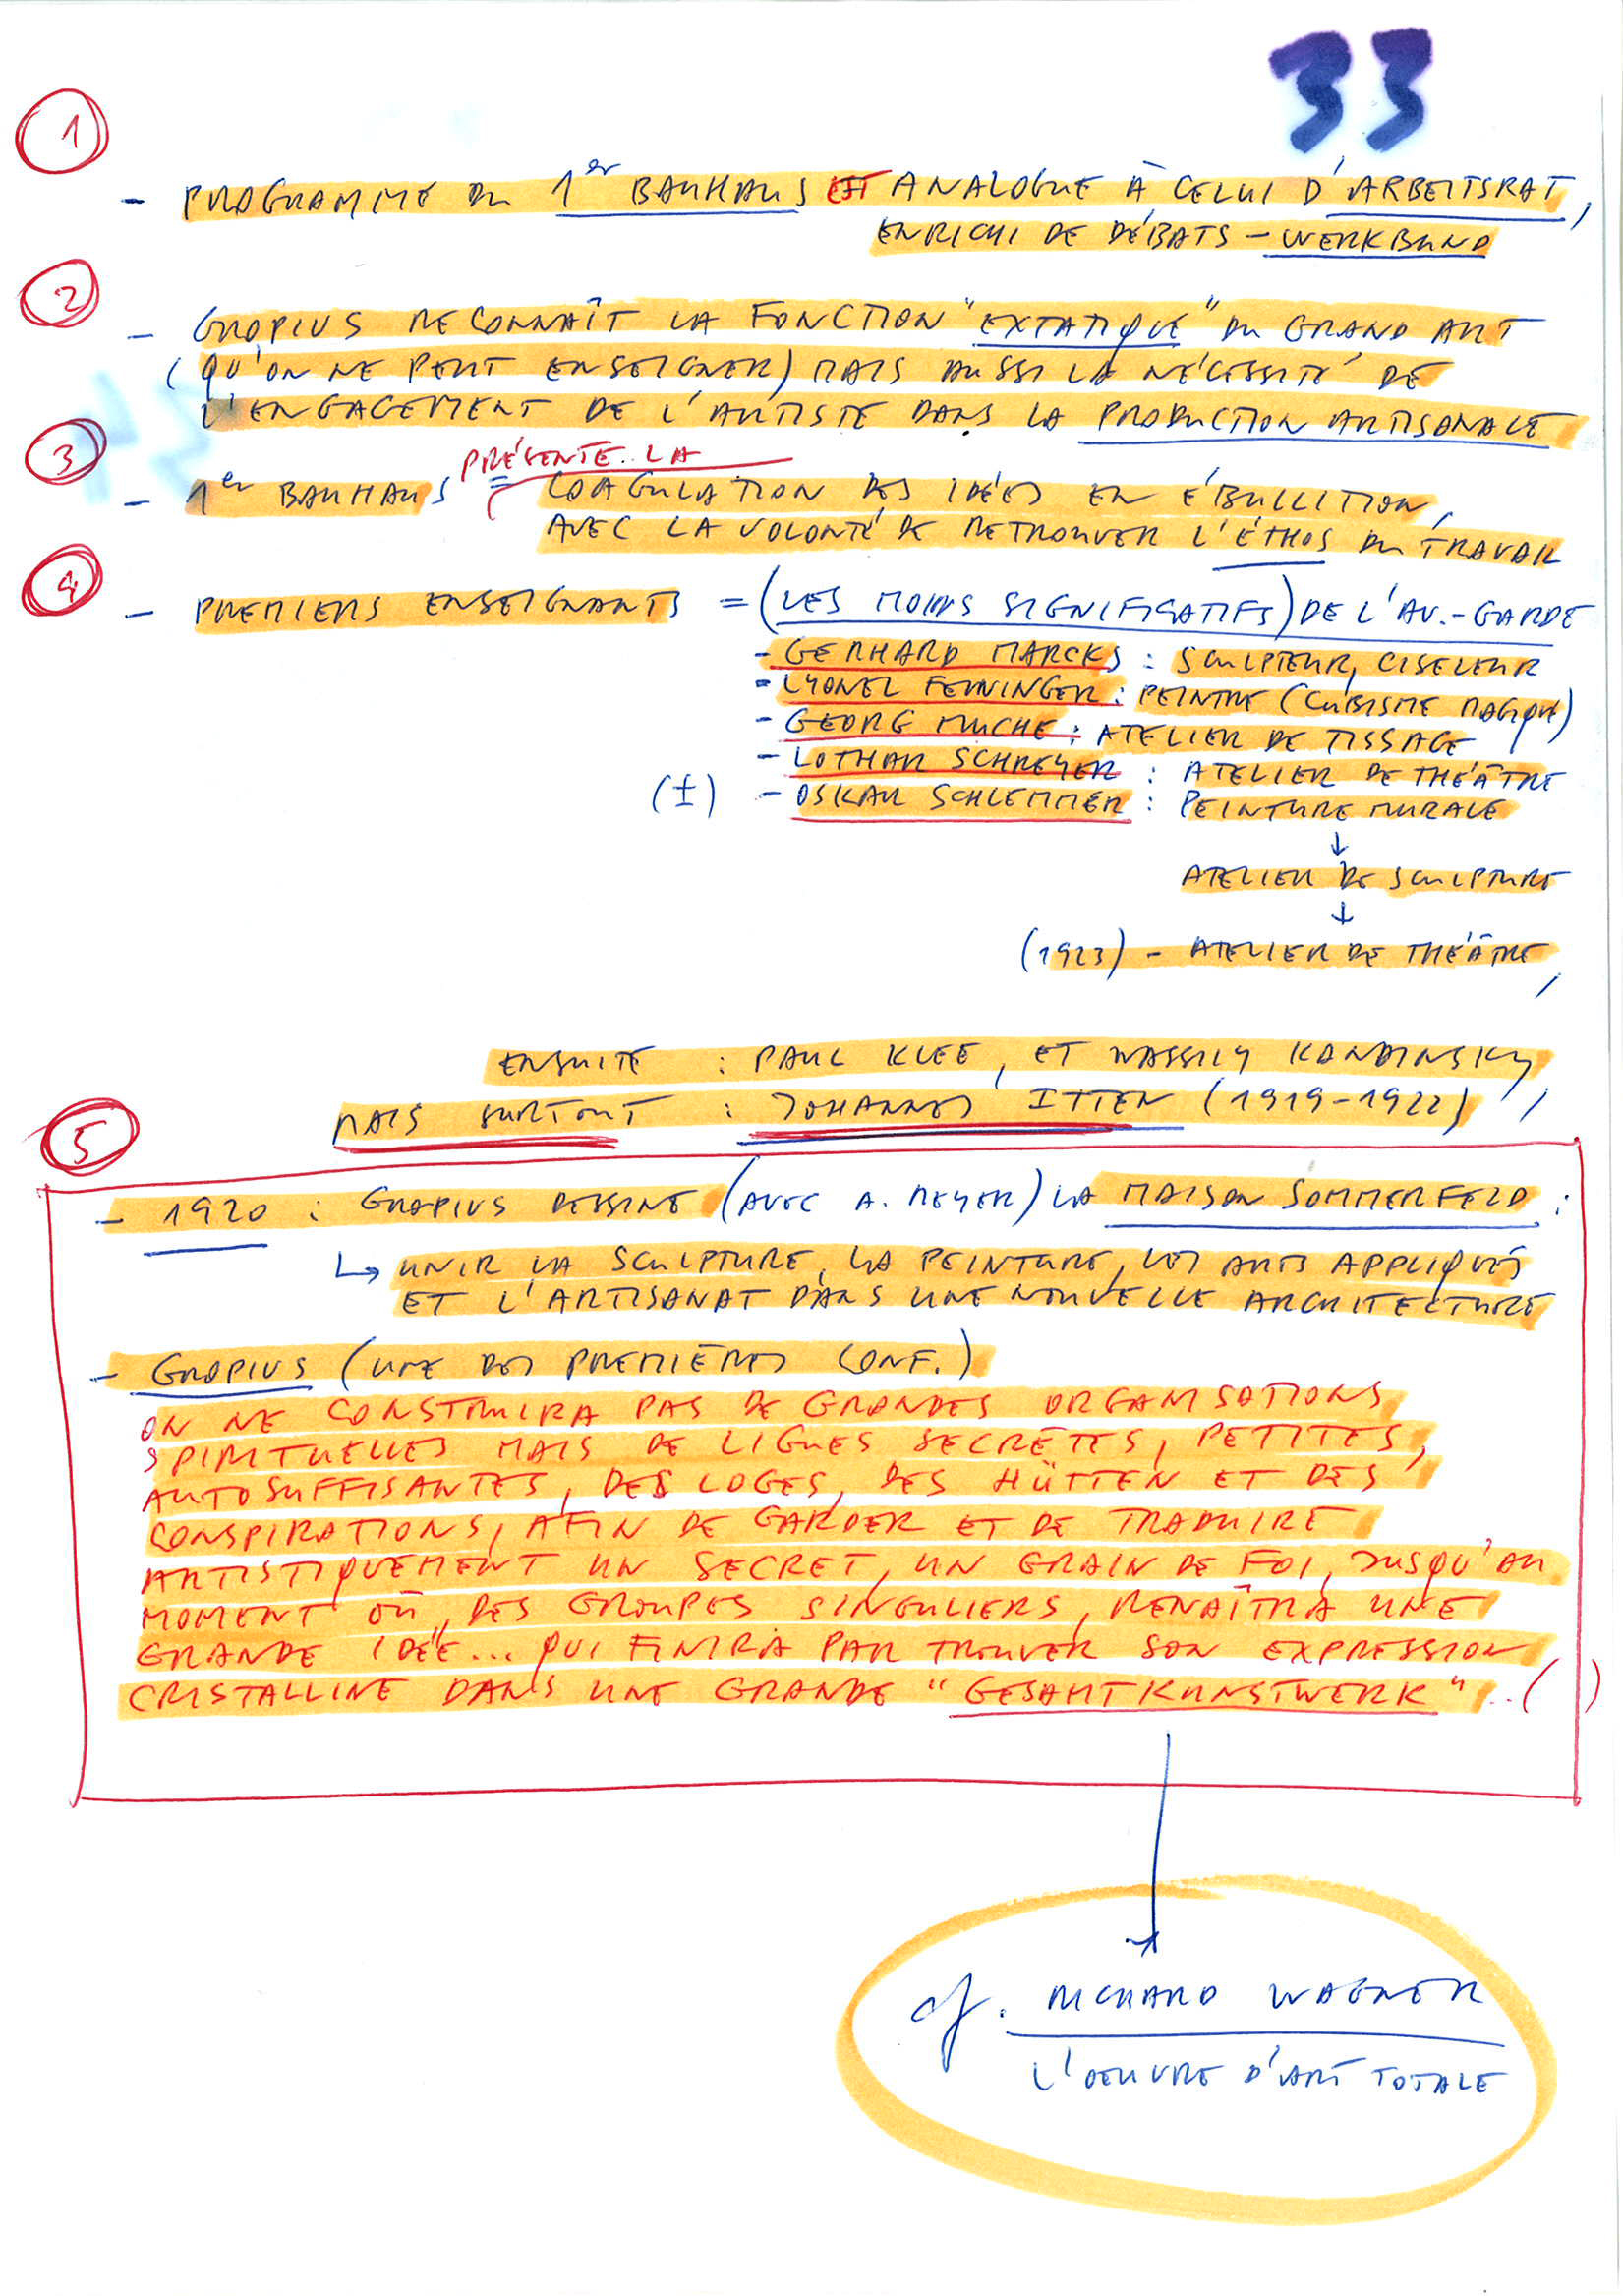 33
1
- PROGRAMME DU 1er BAUHAUS EST ANALOGUE À CELUI D'ARBEITSRAT,
ENRICHI DE DÉBATS - WERKBUND
2
- GROPIUS RECONNAÎT LA FONCTION "EXTATIQUE" DU GRAND ART
(QU'ON NE PEUT ENSEIGNER) MAIS AUSSI LA NÉCESSITÉ DE
L'ENGAGEMENT DE L'ARTISTE DANS LA PRODUCTION ARTISANALE
3
PRÉSENTE LA
- 1er BAUHAUS = COAGULATION DES IDÉES EN ÉBULLITION,
AVEC LA VOLONTÉ DE RETROUVER L'ÉTHOS DU TRAVAIL
4
- PREMIERS ENSEIGNANTS = (LES MOINS SIGNIFICATIFS) DE L'AV.-GARDE
- GERHARD MARCKS : SCULPTEUR, CISELEUR
- LYONEL FEININGER : PEINTRE (CUBISME MAGIQUE)
- GEORG MUCHE : ATELIER DE TISSAGE
- LOTHAR SCHREYER : ATELIER DE THÉÂTRE
(±) - OSKAR SCHLEMMER : PEINTURE MURALE
↓
ATELIER DE SCULPTURE
↓
(1923) - ATELIER DE THÉÂTRE,
ENSUITE : PAUL KLEE, ET WASSILY KANDINSKY,
MAIS SURTOUT : JOHANNES ITTEN (1919-1922)
5
- 1920 : GROPIUS DESSINE (AVEC A. MEYER) LA MAISON SOMMERFELD :
↳ UNIR LA SCULPTURE, LA PEINTURE, LES ARTS APPLIQUÉS
ET L'ARTISANAT DANS UNE NOUVELLE ARCHITECTURE
- GROPIUS (UNE DES PREMIÈRES CONF.)
ON NE CONSTRUIRA PAS DE GRANDES ORGANISATIONS
SPIRITUELLES MAIS DE LIGUES SECRÈTES, PETITES,
AUTOSUFFISANTES, DES LOGES, DES HÜTTEN ET DES
CONSPIRATIONS, AFIN DE GARDER ET DE TRADUIRE
ARTISTIQUEMENT UN SECRET, UN GRAIN DE FOI, JUSQU'AU
MOMENT OÙ, DES GROUPES SINGULIERS, RENAÎTRA UNE
GRANDE IDÉE... QUI FINIRA PAR TROUVER SON EXPRESSION
CRISTALLINE DANS UNE GRANDE "GESAMTKUNSTWERK"...( )
cf. RICHARD WAGNER
L'OEUVRE D'ART TOTALE